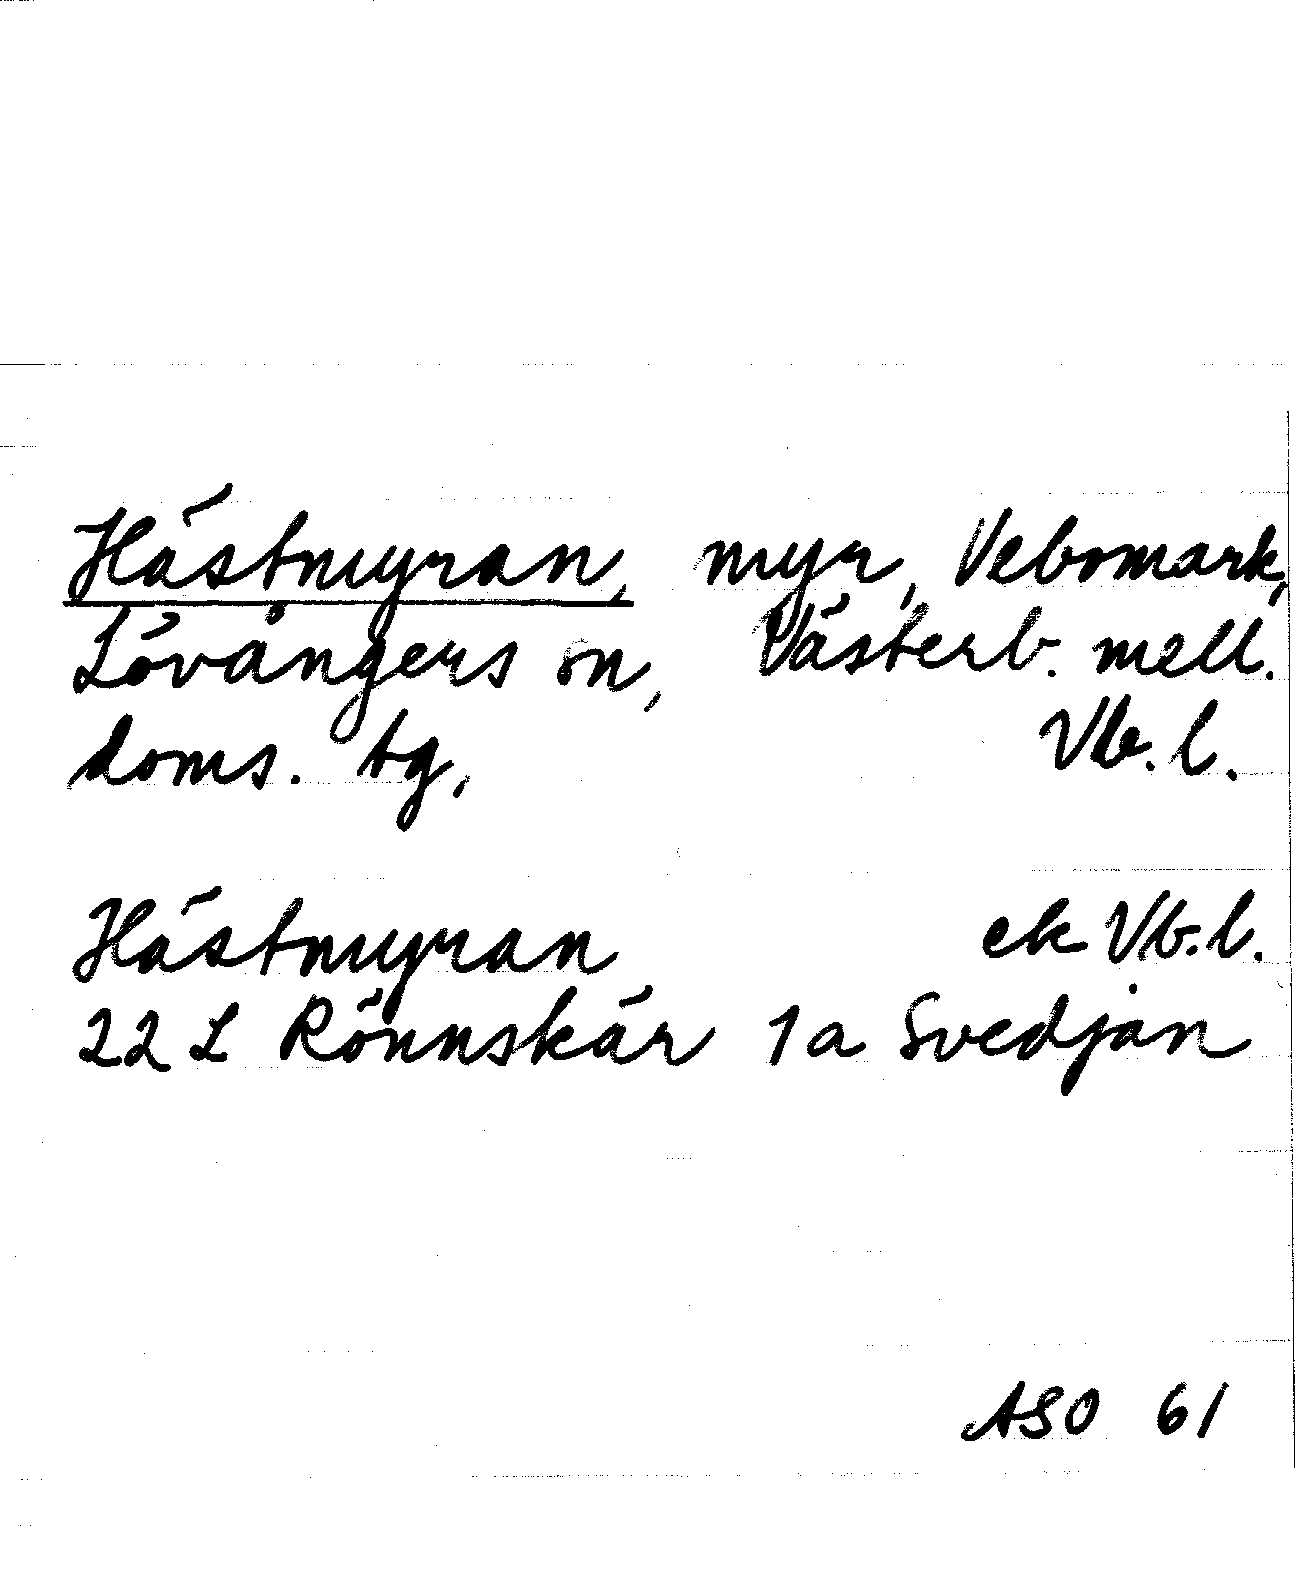 Hästmyran, myr, Vebomark,
Lövångers sn, Västerb. mell.
doms. tg, Vb. l.
Hästmyran ek Vb. l.
22 L Rönnskär 1a Svedjan
ASO 61